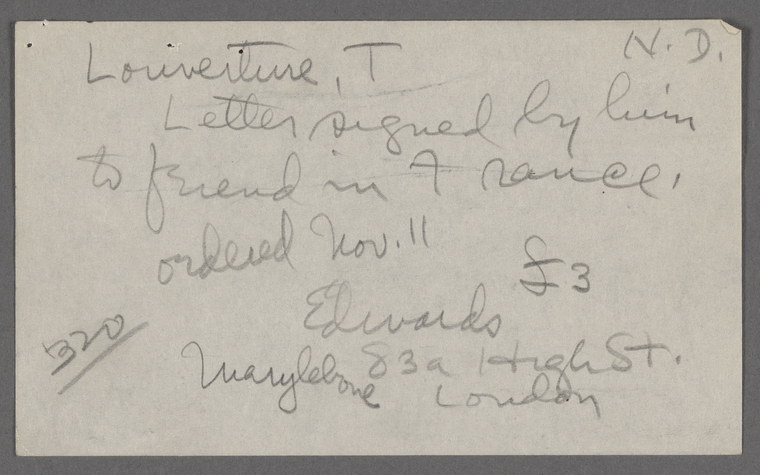 N.D.
Louverture, T
Letter signed by him
to friend in France.
ordered Nov. 11
£3
Edwards
83a High St.
Marylebone London
320